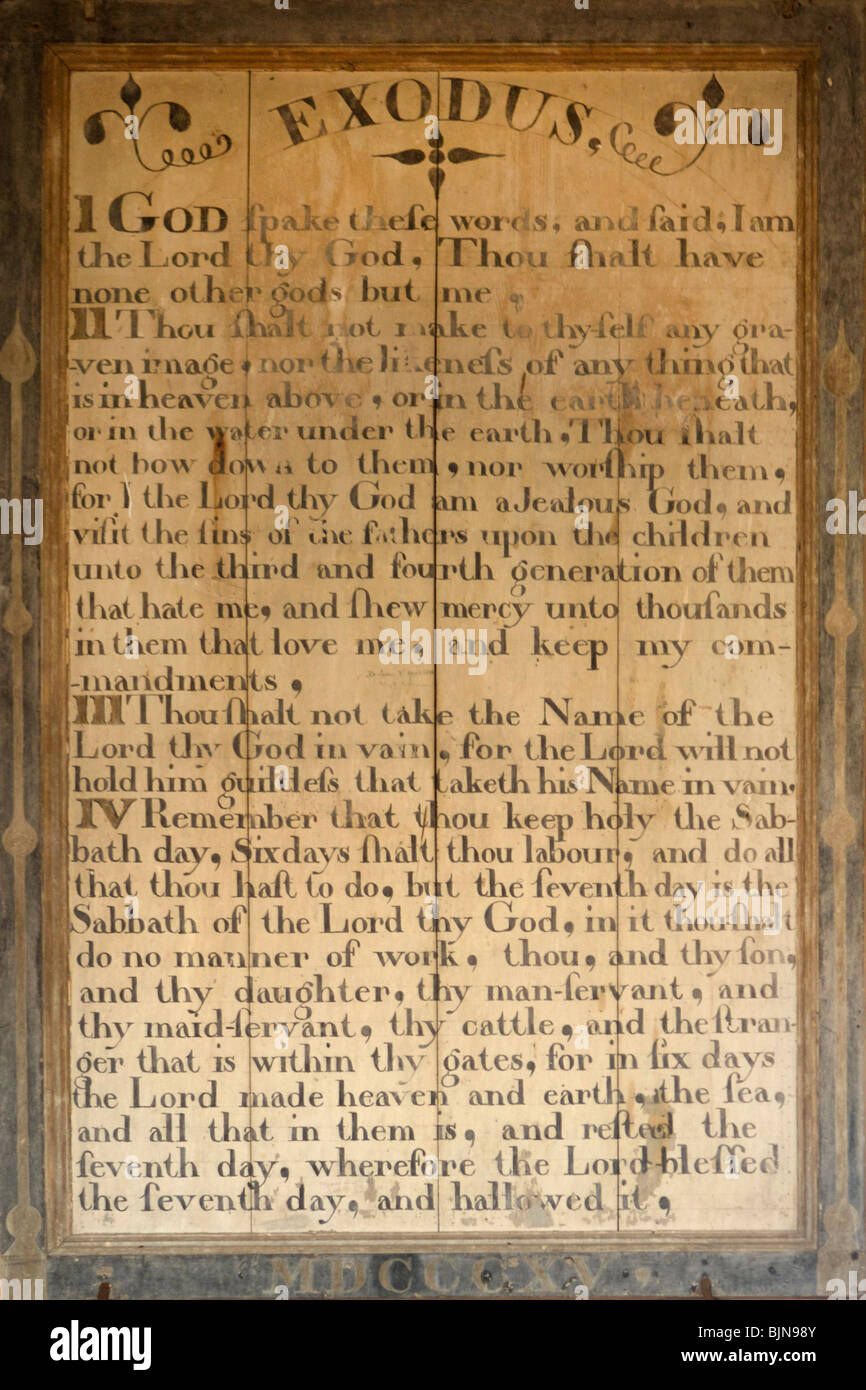 EXODUS,
I GOD ſpake theſe words, and ſaid, I am
the Lord thy God, Thou ſhalt have
none other gods but me,
II Thou ſhalt not make to thy-ſelf any gra-
-ven image, nor the likeneſs of any thing that
is in heaven above, or in the earth beneath,
or in the water under the earth, Thou ſhalt
not bow down to them, nor worſhip them,
for I the Lord thy God am a Jealous God, and
viſit the ſins of the fathers upon the children
unto the third and fourth generation of them
that hate me, and ſhew mercy unto thouſands
in them that love me, and keep my com-
-mandments,
III Thou ſhalt not take the Name of the
Lord thy God in vain, for the Lord will not
hold him guiltleſs that taketh his Name in vain.
IV Remember that thou keep holy the Sab-
bath day, Six days ſhalt thou labour, and do all
that thou haſt to do, but the ſeventh day is the
Sabbath of the Lord thy God, in it thou ſhalt
do no manner of work, thou, and thy ſon,
and thy daughter, thy man-ſervant, and
thy maid-ſervant, thy cattle, and the ſtran-
ger that is within thy gates, for in ſix days
the Lord made heaven and earth, the ſea,
and all that in them is, and reſted the
ſeventh day, wherefore the Lord bleſſed
the ſeventh day, and hallowed it,
MDCCCXV
alamy
Image ID: BJN98Y
www.alamy.com